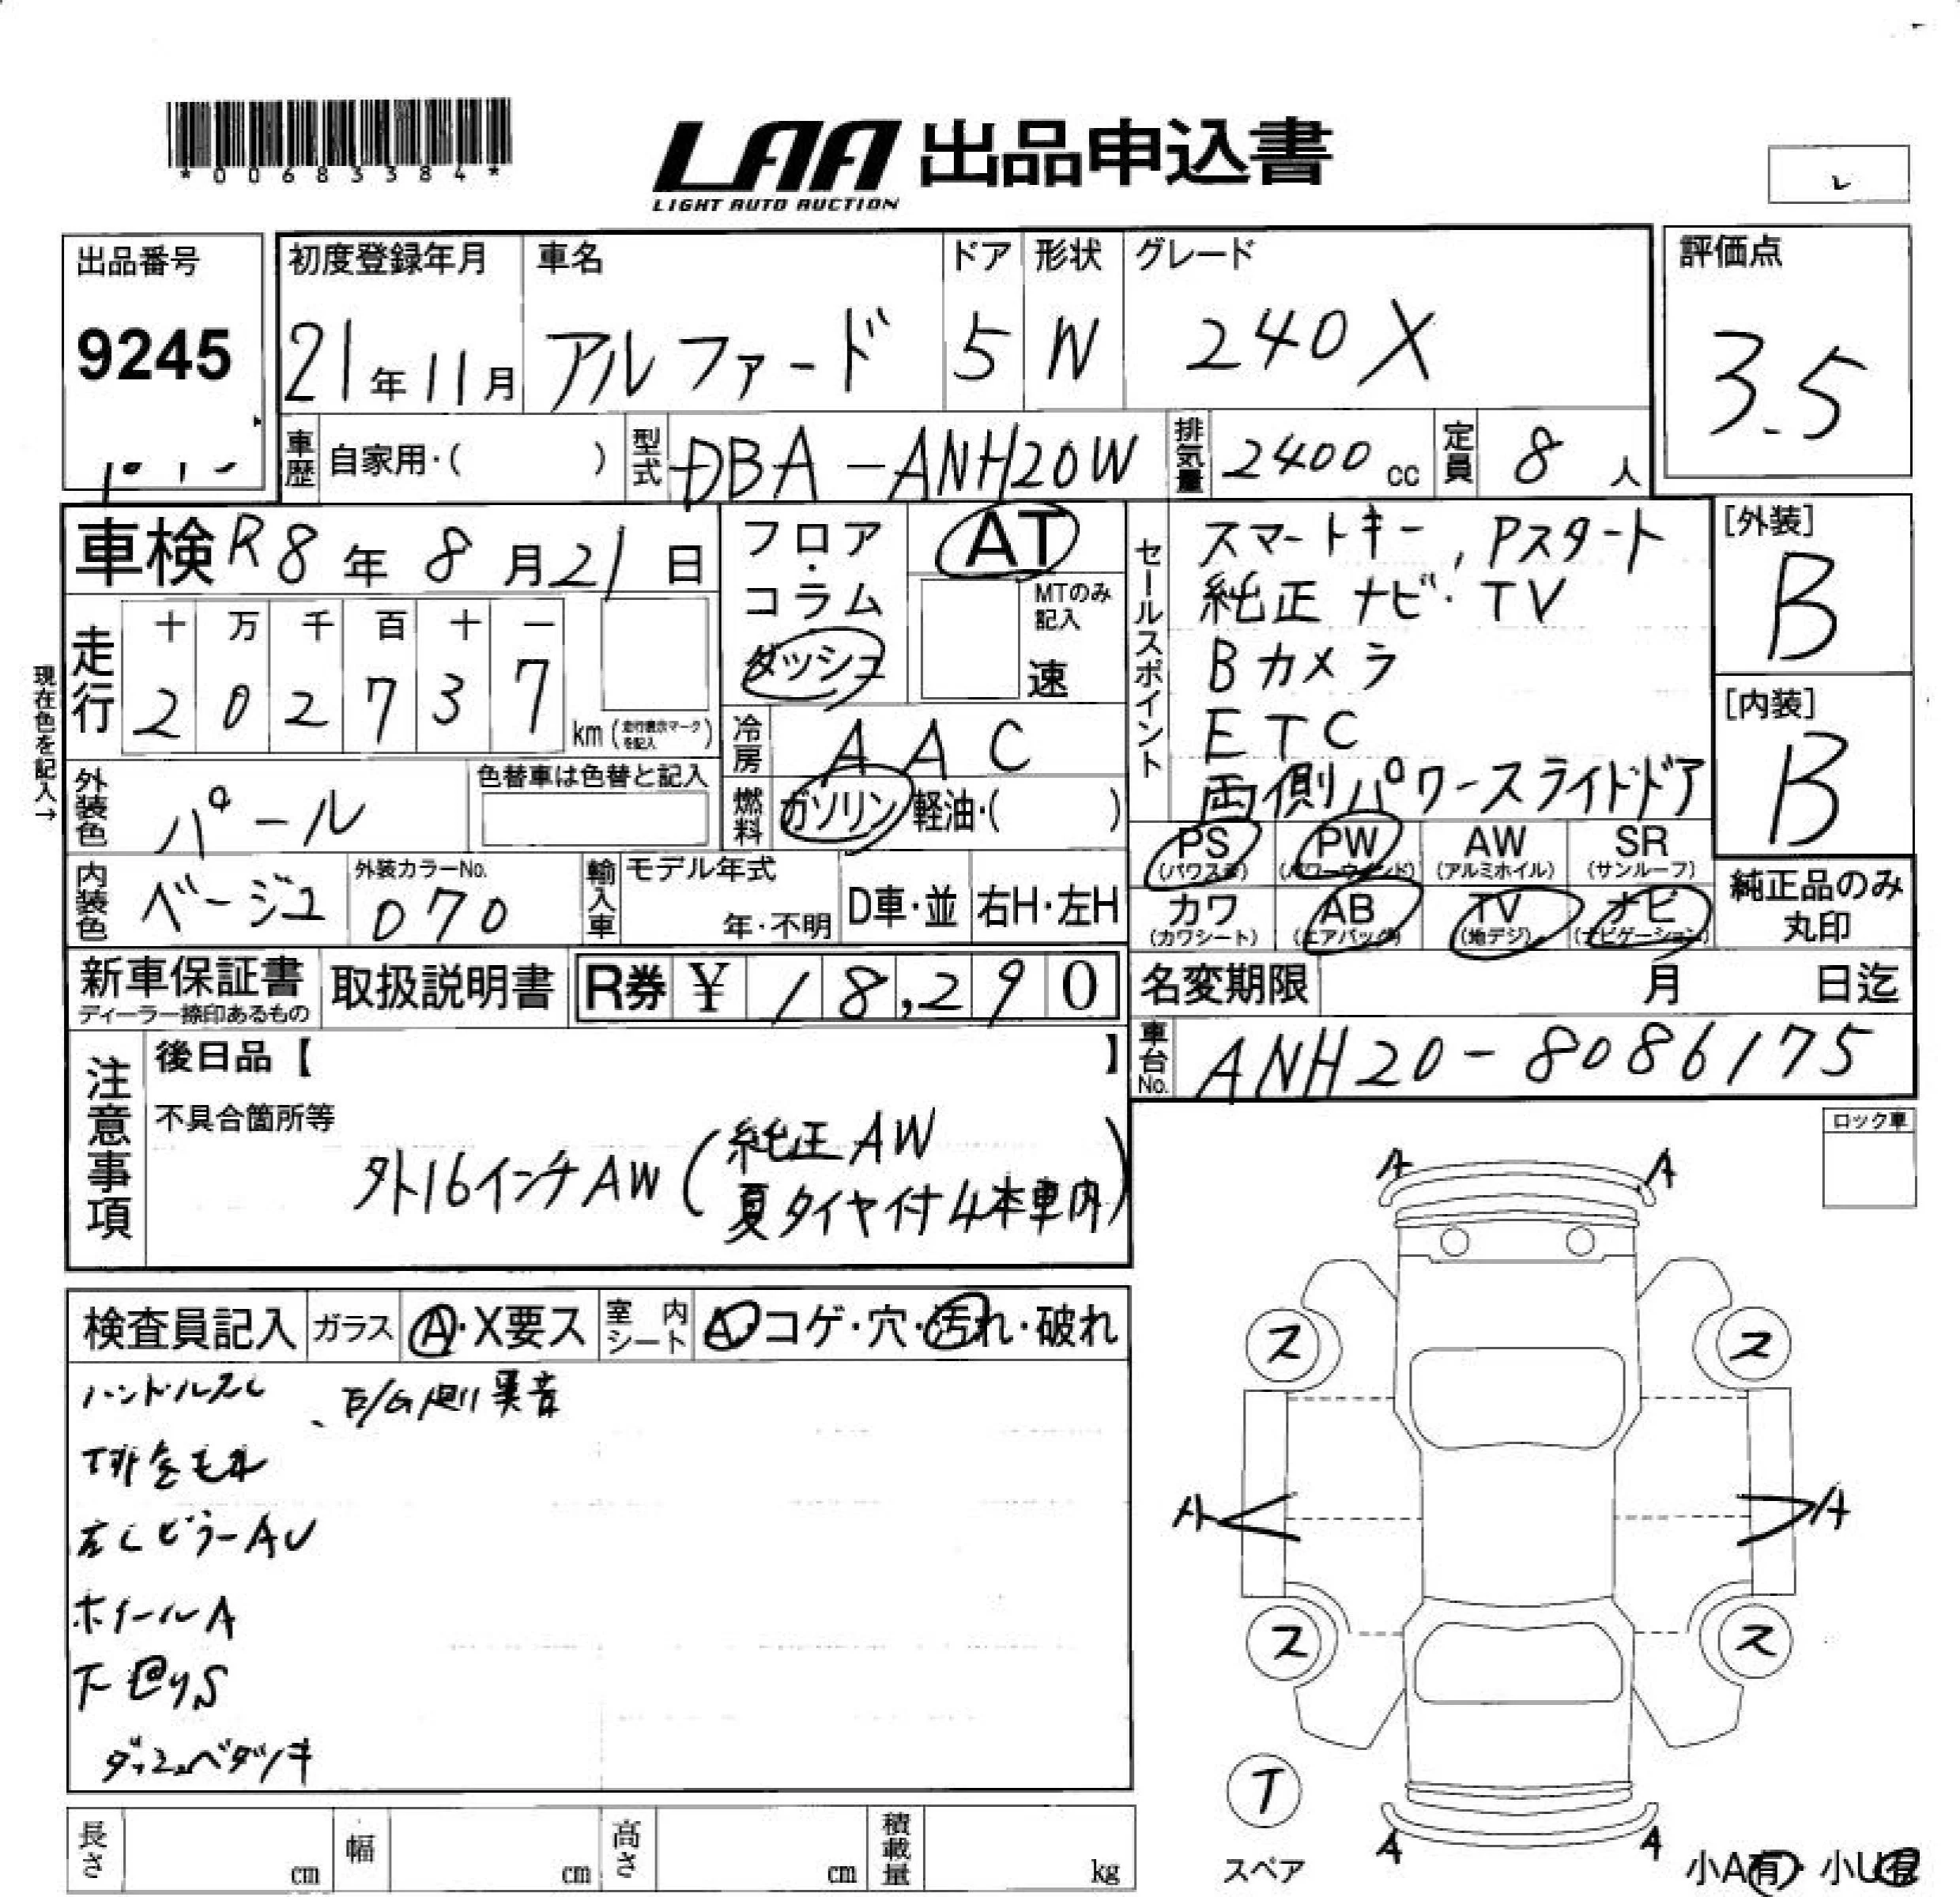 *00683384*
LAA 出品申込書
LIGHT AUTO AUCTION
出品番号
9245
初度登録年月
21年11月
車名
アルファード
ドア
5
形状
W
グレード
240X
評価点
3.5
車歴 自家用・( )
型式 DBA-ANH20W
排気量 2400cc
定員 8人
車検 R8年8月21日
フロア・コラム
ダッシュ
AT
MTのみ記入
速
走行
十 万 千 百 十 一
2 0 2 7 3 7
km (走行表示マークを記入)
現在色を記入→
冷房 AAC
燃料 ガソリン 軽油・( )
外装色 パール
色替車は色替と記入
内装色 ベージュ
外装カラーNo.
070
輸入車
モデル年式
年・不明
D車・並
右H・左H
セールスポイント
スマートキー, Pスタート
純正ナビ・TV
Bカメラ
ETC
両側パワースライドドア
[外装]
B
[内装]
B
PS (パワステ)
PW (パワーウィンド)
AW (アルミホイル)
SR (サンルーフ)
カワ (カワシート)
AB (エアバッグ)
TV (地デジ)
ナビ (ナビゲーション)
純正品のみ
丸印
新車保証書
ディーラー捺印あるもの
取扱説明書
R券 ¥ 18,290
名変期限 月 日迄
車台No. ANH20-8086175
注意事項
後日品【 】
不具合箇所等
外16インチAW (純正AW
夏タイヤ付4本車内)
ロック車
検査員記入
ガラス A・X要ス
室内シート A・コゲ・穴・汚れ・破れ
ハンドルスレ、E/G側異音
排気モレ
ピラーAU
ホイールA
下
ダッシュベタツキ
A A
ス ス
A A
ス ス
T
スペア
A A
小A有・小U有
長さ cm
幅 cm
高さ cm
積載量 kg